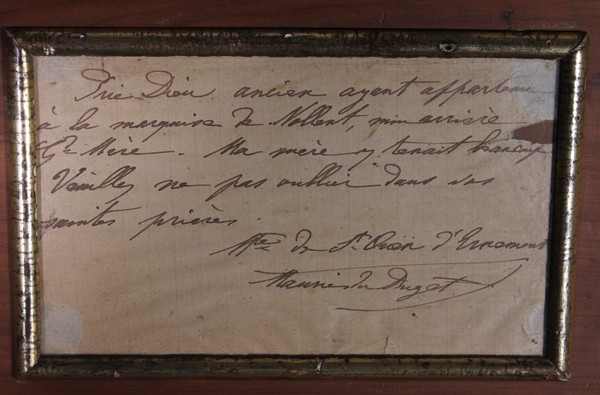 Prie Dieu ancien ayant appartenu
à la marquise de Nollent, mon arrière
Gde Mère. Ma mère y tenait beaucoup
Veuillez ne pas oublier dans vos
saintes prières.
Mse de St Ouën d'Ernemont
Maurice du Puget